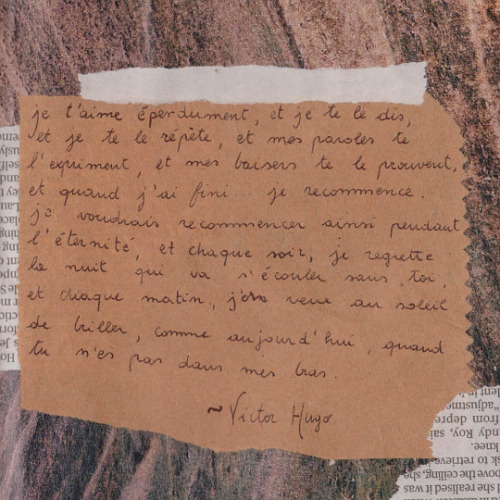 je t'aime éperdument, et je te le dis,
et je te le répète, et mes paroles te
l'expriment, et mes baisers te le prouvent,
et quand j'ai fini... je recommence.
je voudrais recommencer ainsi pendant
l'éternité, et chaque soir, je regrette
la nuit qui va s'écouler sans toi,
et chaque matin, j'en veux au soleil
de briller, comme aujourd'hui, quand
tu n'es pas dans mes bras.
~ Victor Hugo
"adjustme
from depre
ndy Roy, sai
knee.
sk to retrieve
above the ceiling, she
she realised it was